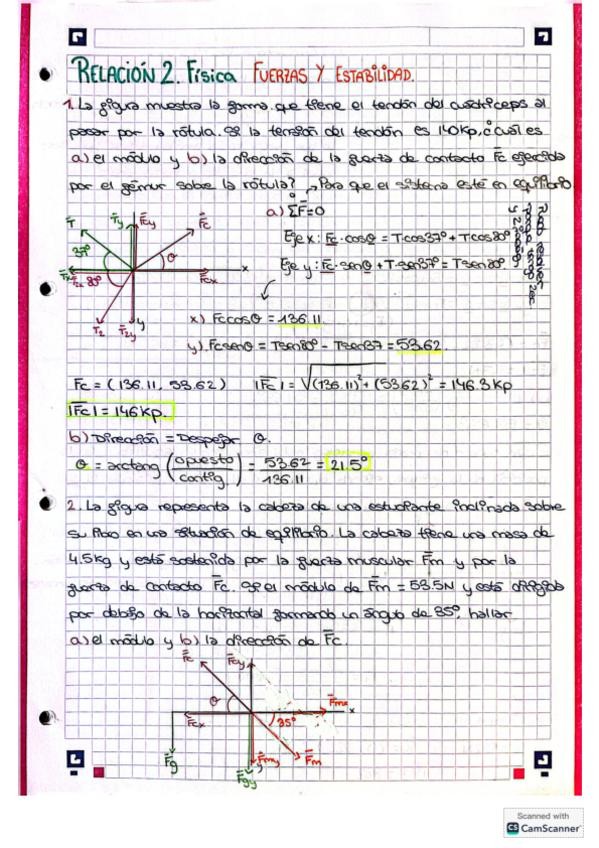 RELACIÓN 2. Física FUERZAS Y ESTABILIDAD.
1. La figura muestra la forma que tiene el tendón del cuádriceps al
pasar por la rótula. Si la tensión del tendón es 140kp, ¿cuál es
a) el módulo y b) la dirección de la fuerza de contacto F̄c ejercida
por el fémur sobre la rótula? → Para que el sistema esté en equilibrio
a) ΣF̄=0
Eje x: Fc·cosθ = T·cos37º + Tcos80º
Eje y: Fc·senθ + T·sen37º = Tsen80º
T̄ T̄y F̄cy F̄c
37º θ
80º F̄cx x
T̄2 T̄2y y
x) Fccosθ = 136.11
y) Fcsenθ = Tsen80º - Tsen37 = 53.62.
Fc = (136.11, 53.62) |F̄c| = √(136.11)² + (53.62)² = 146.3 kp
|F̄c| = 146 kp.
b) Dirección = Despejar θ.
θ = arctang (opuesto/contig.) = 53.62/136.11 = 21.5º
2. La figura representa la cabeza de una estudiante inclinada sobre
su libro en una situación de equilibrio. La cabeza tiene una masa de
4.5kg y está sostenida por la fuerza muscular F̄m y por la
fuerza de contacto F̄c. Si el módulo de F̄m = 53.5N y está dirigida
por debajo de la horizontal formando un ángulo de 35º, hallar
a) el módulo y b) la dirección de F̄c.
F̄c F̄cy
θ F̄mx x
F̄cx 35º
F̄g F̄my F̄m
F̄gy y
Scanned with
CS CamScanner